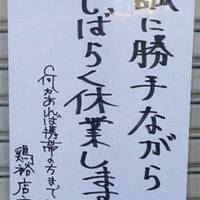 誠に勝手ながら
しばらく休業します
何かあれば携帯の方まで
鶏裕店